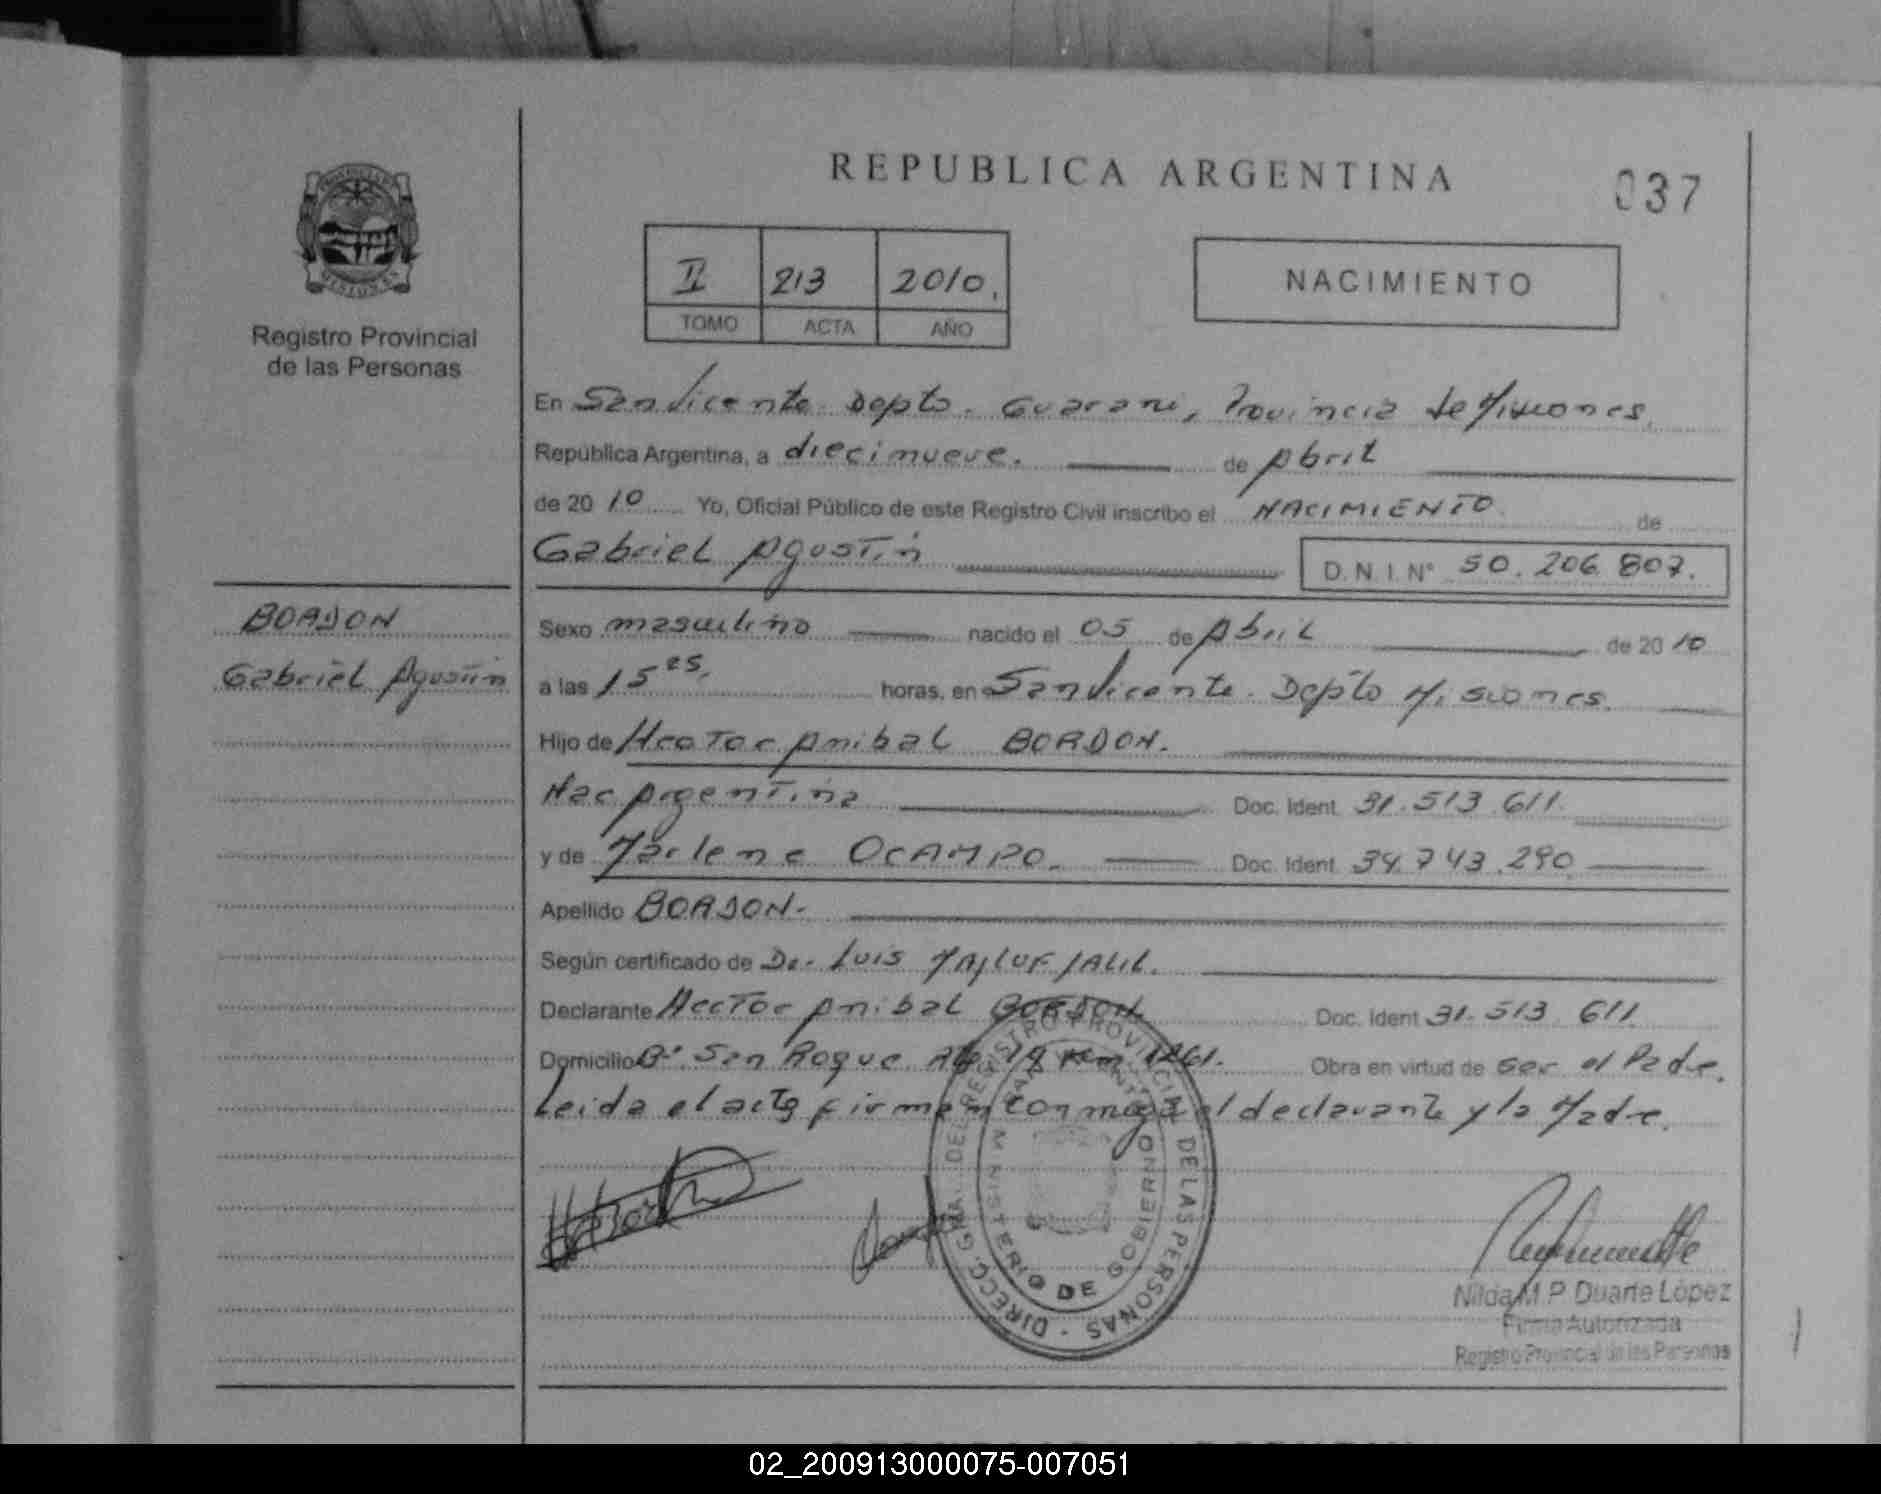 REPUBLICA ARGENTINA
037
II 213 2010.
TOMO ACTA AÑO
NACIMIENTO
PROVINCIA DE
MISIONES
Registro Provincial
de las Personas
En San Vicente Depto. Guarani, Provincia de Misiones.
República Argentina, a diecinueve. de Abril
de 2010 Yo, Oficial Público de este Registro Civil inscribo el NACIMIENTO de
Gabriel Agustin D.N.I. Nº 50.206.807.
BORDON
Gabriel Agustin
Sexo masculino nacido el 05 de Abril de 2010
a las 15 horas, en San Vicente. Depto Misiones.
Hijo de Hector Anibal BORDON.
Nac Argentina Doc. Ident. 31.513.611.
y de Marlene OCAMPO. Doc. Ident. 34.743.290.
Apellido BORDON.
Según certificado de Dr. Luis JALIL.
Declarante Hector Anibal BORDON Doc. Ident 31.513.611.
Domicilio Bº. San Roque Km 1261. Obra en virtud de ser el Padre.
Leida el acta firman conmigo el declarante y la Madre.
DIRECC. GRAL. DEL REGISTRO PROVINCIAL DE LAS PERSONAS
MINISTERIO DE GOBIERNO
Nilda M.P. Duarte López
Firma Autorizada
Registro Provincial de las Personas
02_200913000075-007051